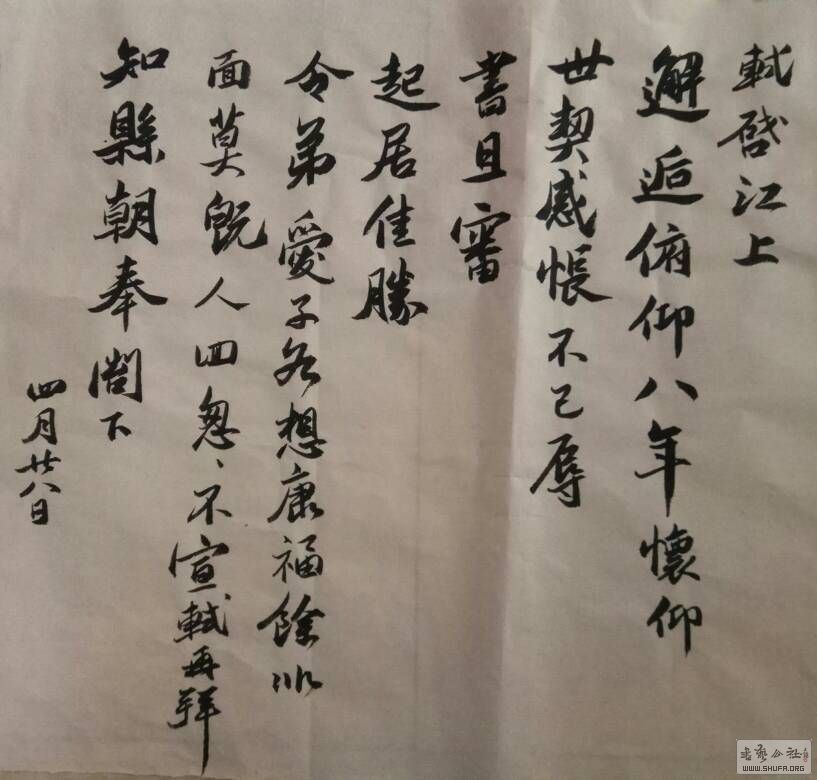 軾啓江上
邂逅俯仰八年懷仰
世契感悵不已辱
書且審
起居佳勝
令弟愛子各想康福餘非
面莫既人回怱〻不宣軾再拜
知縣朝奉閤下
四月廿八日
书艺公社
WWW.SHUFA.ORG